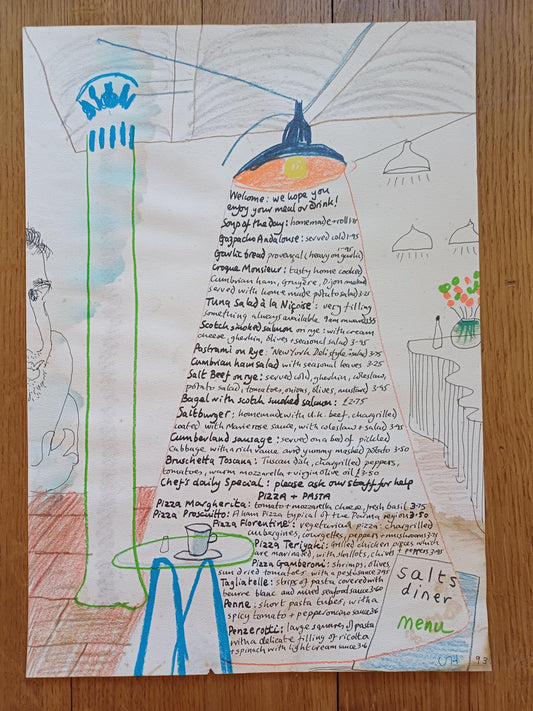 Welcome: we hope you
enjoy your meal or drink!
Soup of the Day: homemade + roll
Gazpacho Andalouse: served cold 1-95
Garlic bread provençal (heavy on garlic)
Croque Monsieur: tasty home cooked
Cumbrian ham, gruyère, Dijon mustard
served with home made potato salad 3-25
Tuna Salad à la Niçoise: very filling
something always available 9am onwards
Scotch smoked salmon on rye: with cream
cheese, gherkin, olives + seasonal salad 3-95
Pastrami on Rye: "New York Deli style" + salad 3-75
Cumbrian ham salad with seasonal leaves 3-25
Salt Beef on rye: served cold, gherkin, coleslaw,
potato salad, tomatoes, onions, olives, mustard 3-95
Bagel with scotch smoked salmon: £2-75
Saltburger: homemade with U.K. beef, chargrilled
coated with Marie rose sauce, with coleslaw + salad 3-95
Cumberland sausage: served on a bed of pickled
Cabbage with a rich sauce and yummy mashed potato 3-50
Bruschetta Toscana: Tuscan dish, chargrilled peppers,
tomatoes, warm mozzarella + virgin olive oil £3-50
Chef's daily Special: please ask our staff for help
PIZZA + PASTA
Pizza Margherita: tomato + mozzarella cheese, fresh basil 3-75
Pizza Prosciutto: A ham Pizza typical of the Parma region 3-80
Pizza Florentine: vegetarian pizza: chargrilled
aubergines, courgettes, peppers + mushrooms 3-75
Pizza Teriyaki: Grilled chicken pieces which
are marinated, with shallots, chives + peppers 3-95
Pizza Gamberoni: shrimps, olives,
sun dried tomatoes with a pesto sauce 3-95
Tagliatelle: strips of pasta covered with
beurre blanc and mixed seafood sauce 3-60
Penne: short pasta tubes, with a
spicy tomato + pepperoncino sauce 3-6
Penzerotti: large squares of pasta
with a delicate filling of ricotta
+ spinach with light cream sauce 3-6
salts
diner
menu
DH 93